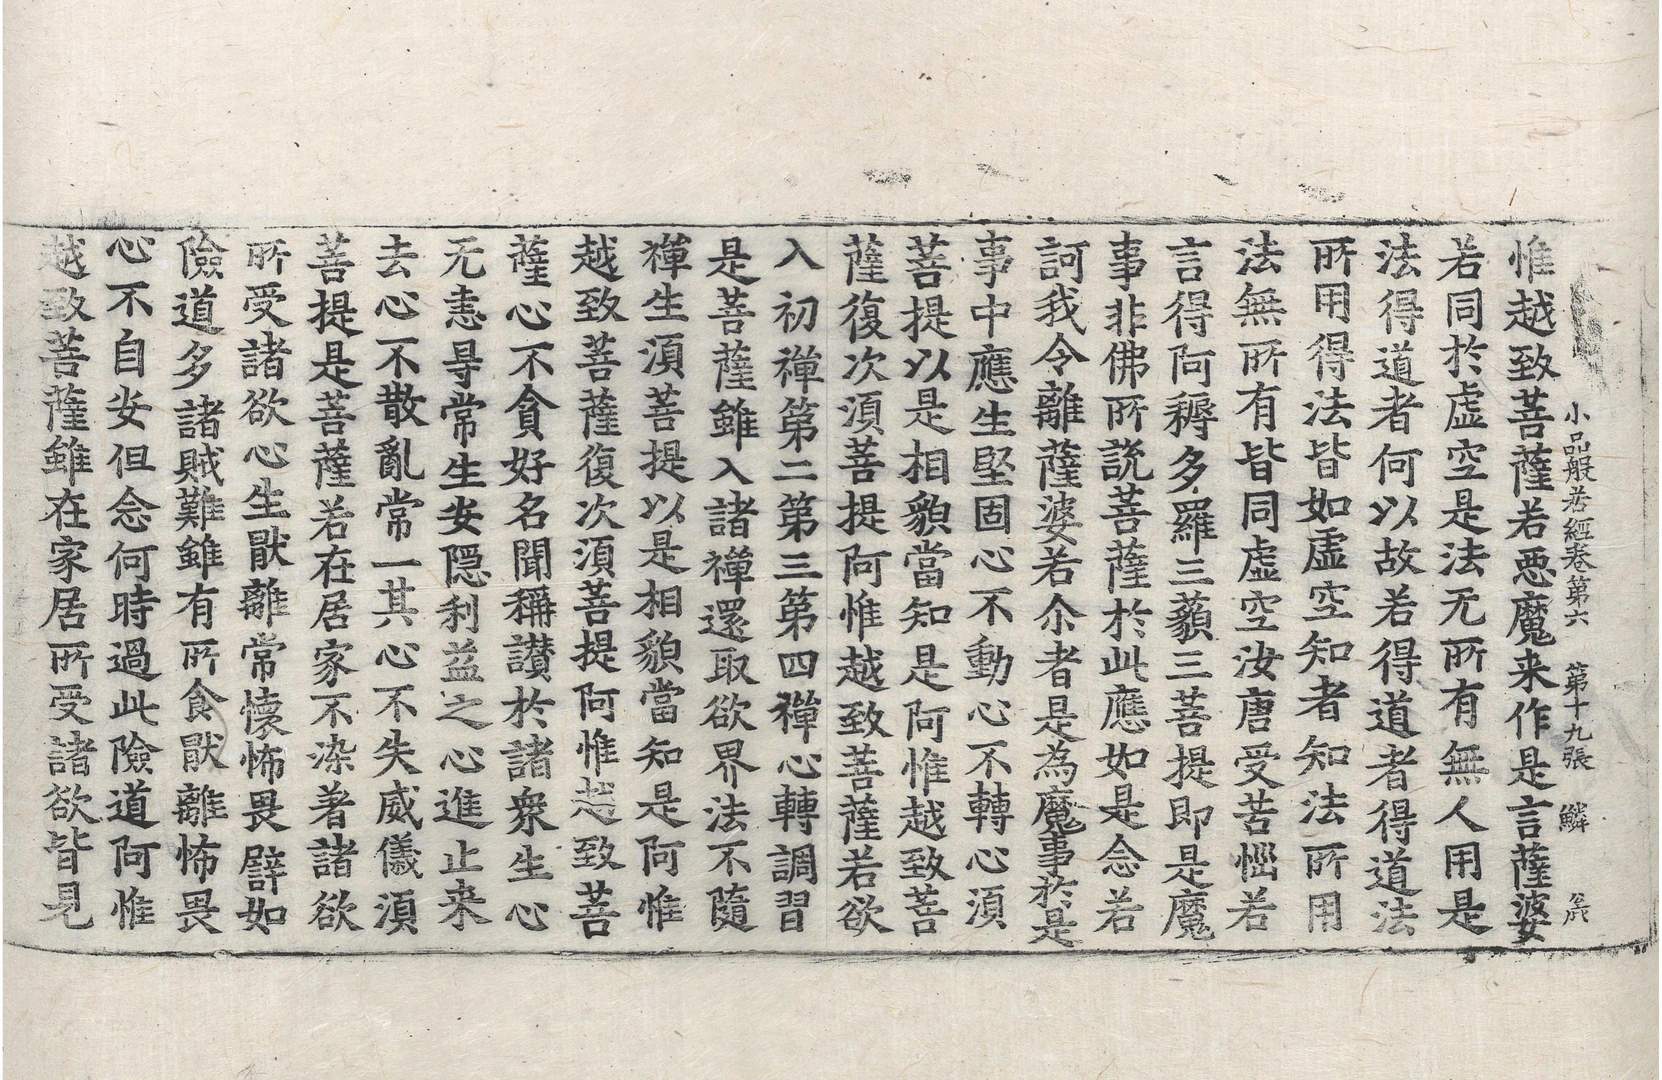 小品般若經卷第六 第十九張 鱗
惟越致菩薩若惡魔来作是言薩婆
若同於虛空是法无所有無人用是
法得道者何以故若得道者得道法
所用得法皆如虛空知者知法所用
法無所有皆同虛空汝唐受苦惱若
言得阿耨多羅三藐三菩提即是魔
事非佛所說菩薩於此應如是念若
訶我令離薩婆若尒者是為魔事於是
事中應生堅固心不動心不轉心須
菩提以是相貌當知是阿惟越致菩
薩復次須菩提阿惟越致菩薩若欲
入初禪第二第三第四禪心轉調習
是菩薩雖入諸禪還取欲界法不隨
禪生須菩提以是相貌當知是阿惟
越致菩薩復次須菩提阿惟越致菩
薩心不貪好名聞稱讃於諸衆生心
无恚㝵常生安隱利益之心進止来
去心不散亂常一其心不失威儀須
菩提是菩薩若在居家不染著諸欲
所受諸欲心生猒離常懷怖畏譬如
險道多諸賊難雖有所食猒離怖畏
心不自安但念何時過此險道阿惟
越致菩薩雖在家居所受諸欲皆見